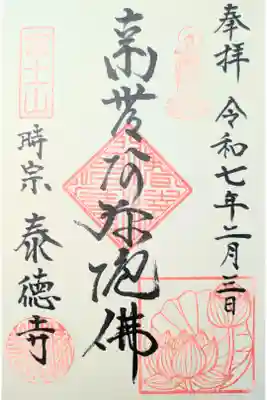 奉拝 令和七年二月三日
南無阿弥陀佛
時宗 泰徳寺